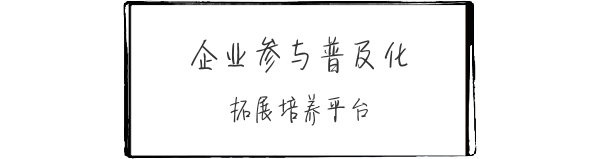 企业参与普及化
拓展培养平台